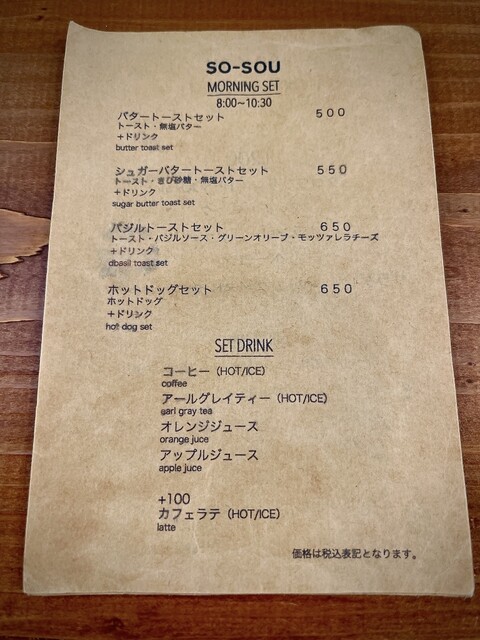 SO-SOU
MORNING SET
8:00~10:30
バタートーストセット 500
トースト・無塩バター
+ドリンク
butter toast set
シュガーバタートーストセット 550
トースト・きび砂糖・無塩バター
+ドリンク
sugar butter toast set
バジルトーストセット 650
トースト・バジルソース・グリーンオリーブ・モッツァレラチーズ
+ドリンク
dbasil toast set
ホットドッグセット 650
ホットドッグ
+ドリンク
hot dog set
SET DRINK
コーヒー(HOT/ICE)
coffee
アールグレイティー(HOT/ICE)
earl gray tea
オレンジジュース
orange juce
アップルジュース
apple juce
+100
カフェラテ(HOT/ICE)
latte
価格は税込表記となります。